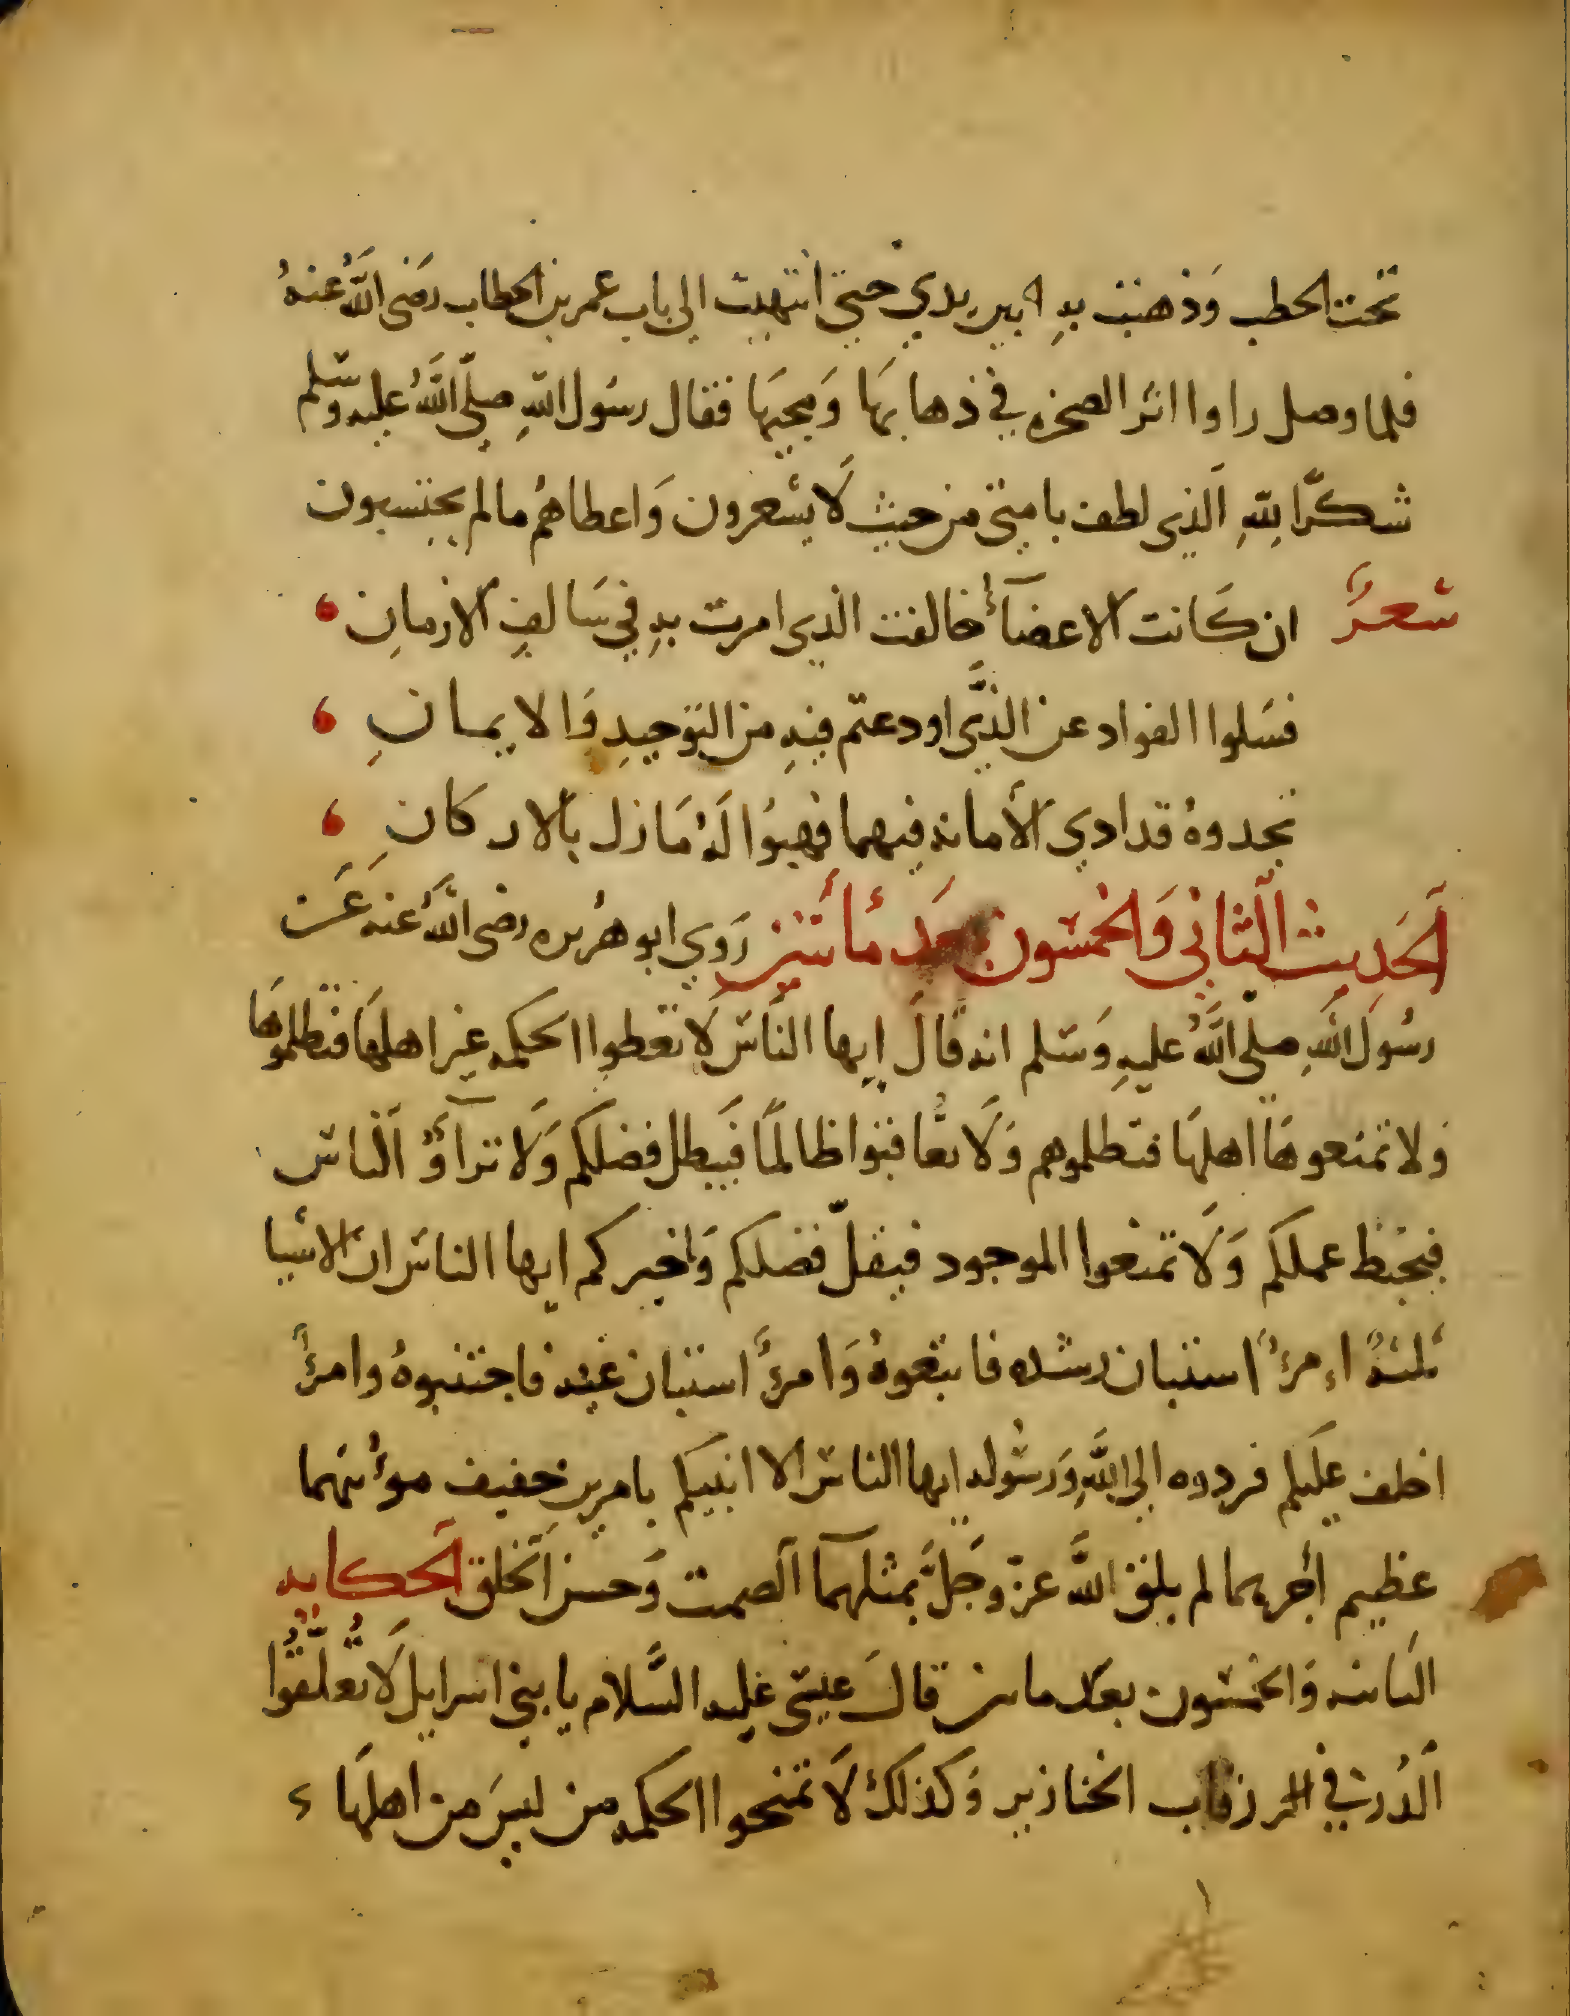 تحت الحطب وَذهبت بهِ ابين يدي حتي انتهيت الي باب عمر بن الخطاب رضَى اللَّهُ عنهُ
فلما وصل راوا اثر الصخره في ذهابهَا وَمجيهَا فقال رسُول اللهِ صلّى اللَّهُ عليه وسّلم
شكرًا لِلّهِ اَلذي لطف بامتي من حيث لَا يشعرون وَاعطاهُم مالم يحتسبون
شعرٌ ان كَانت الاعضآءُ خالفت الذي امرت بهِ في سَالفِ الازمانِ
فسَلوا الفواد عن الذَّي اودعتم فيهِ من التوَحيدِ وَالايمانِ
تجدوهُ قد ادي الأمانه فيهما فهبوُا لَهُ مَا زل بالاركانِ
اَلحَديث الثاني وَالخمسُون بعَد مأتين رَوي ابو هُريره رضى اللَّهُ عنه عَن
رسُولَ اللهِ صلّى اللَّهُ عليهِ وَسَلم انه قالَ ايها الناسَ لَا تعَطوا الحكمه غير اهلهَا فتظلموُهَا
وَلا تمنعوهَا اهلهَا فتظلموهم وَلَا تعُاقبوا ظالمًا فيَبطل فضلكم وَلَا ترآؤُ اَلناسَ
فيحبَط عملكم وَلَا تمنعوا الموجود فيقلّ فضلكم وَاخبركم ايها الناسَ ان الاشيا
ثلثةٌ امرءٌ استبان رشده فاتبعوهُ وَامرءٌ استبان غيه فاجتنبوهُ وامرءٌ
اختلف عليَكم فردوه الي اللَّهِ وَرسُوله ايها الناسَ الا انبيكم بامرين خفيف موُءنتهما
عظيم أجرهما لم يلق اللَّه عزّ وجَلَّ بمثلهمآ اَلصمت وَحسن اَلخلق اَلحكايه
الثانيه وَالخمسُون بعَد ماتين قالَ عيسَى عَليه السَّلام يا بني اسرايل لَا تعُلّقوُا
اَلدُرر في رقاب الخنازير وَكذلكَ لَا تمنحوا الحكمه من ليسَ من اهلهَا